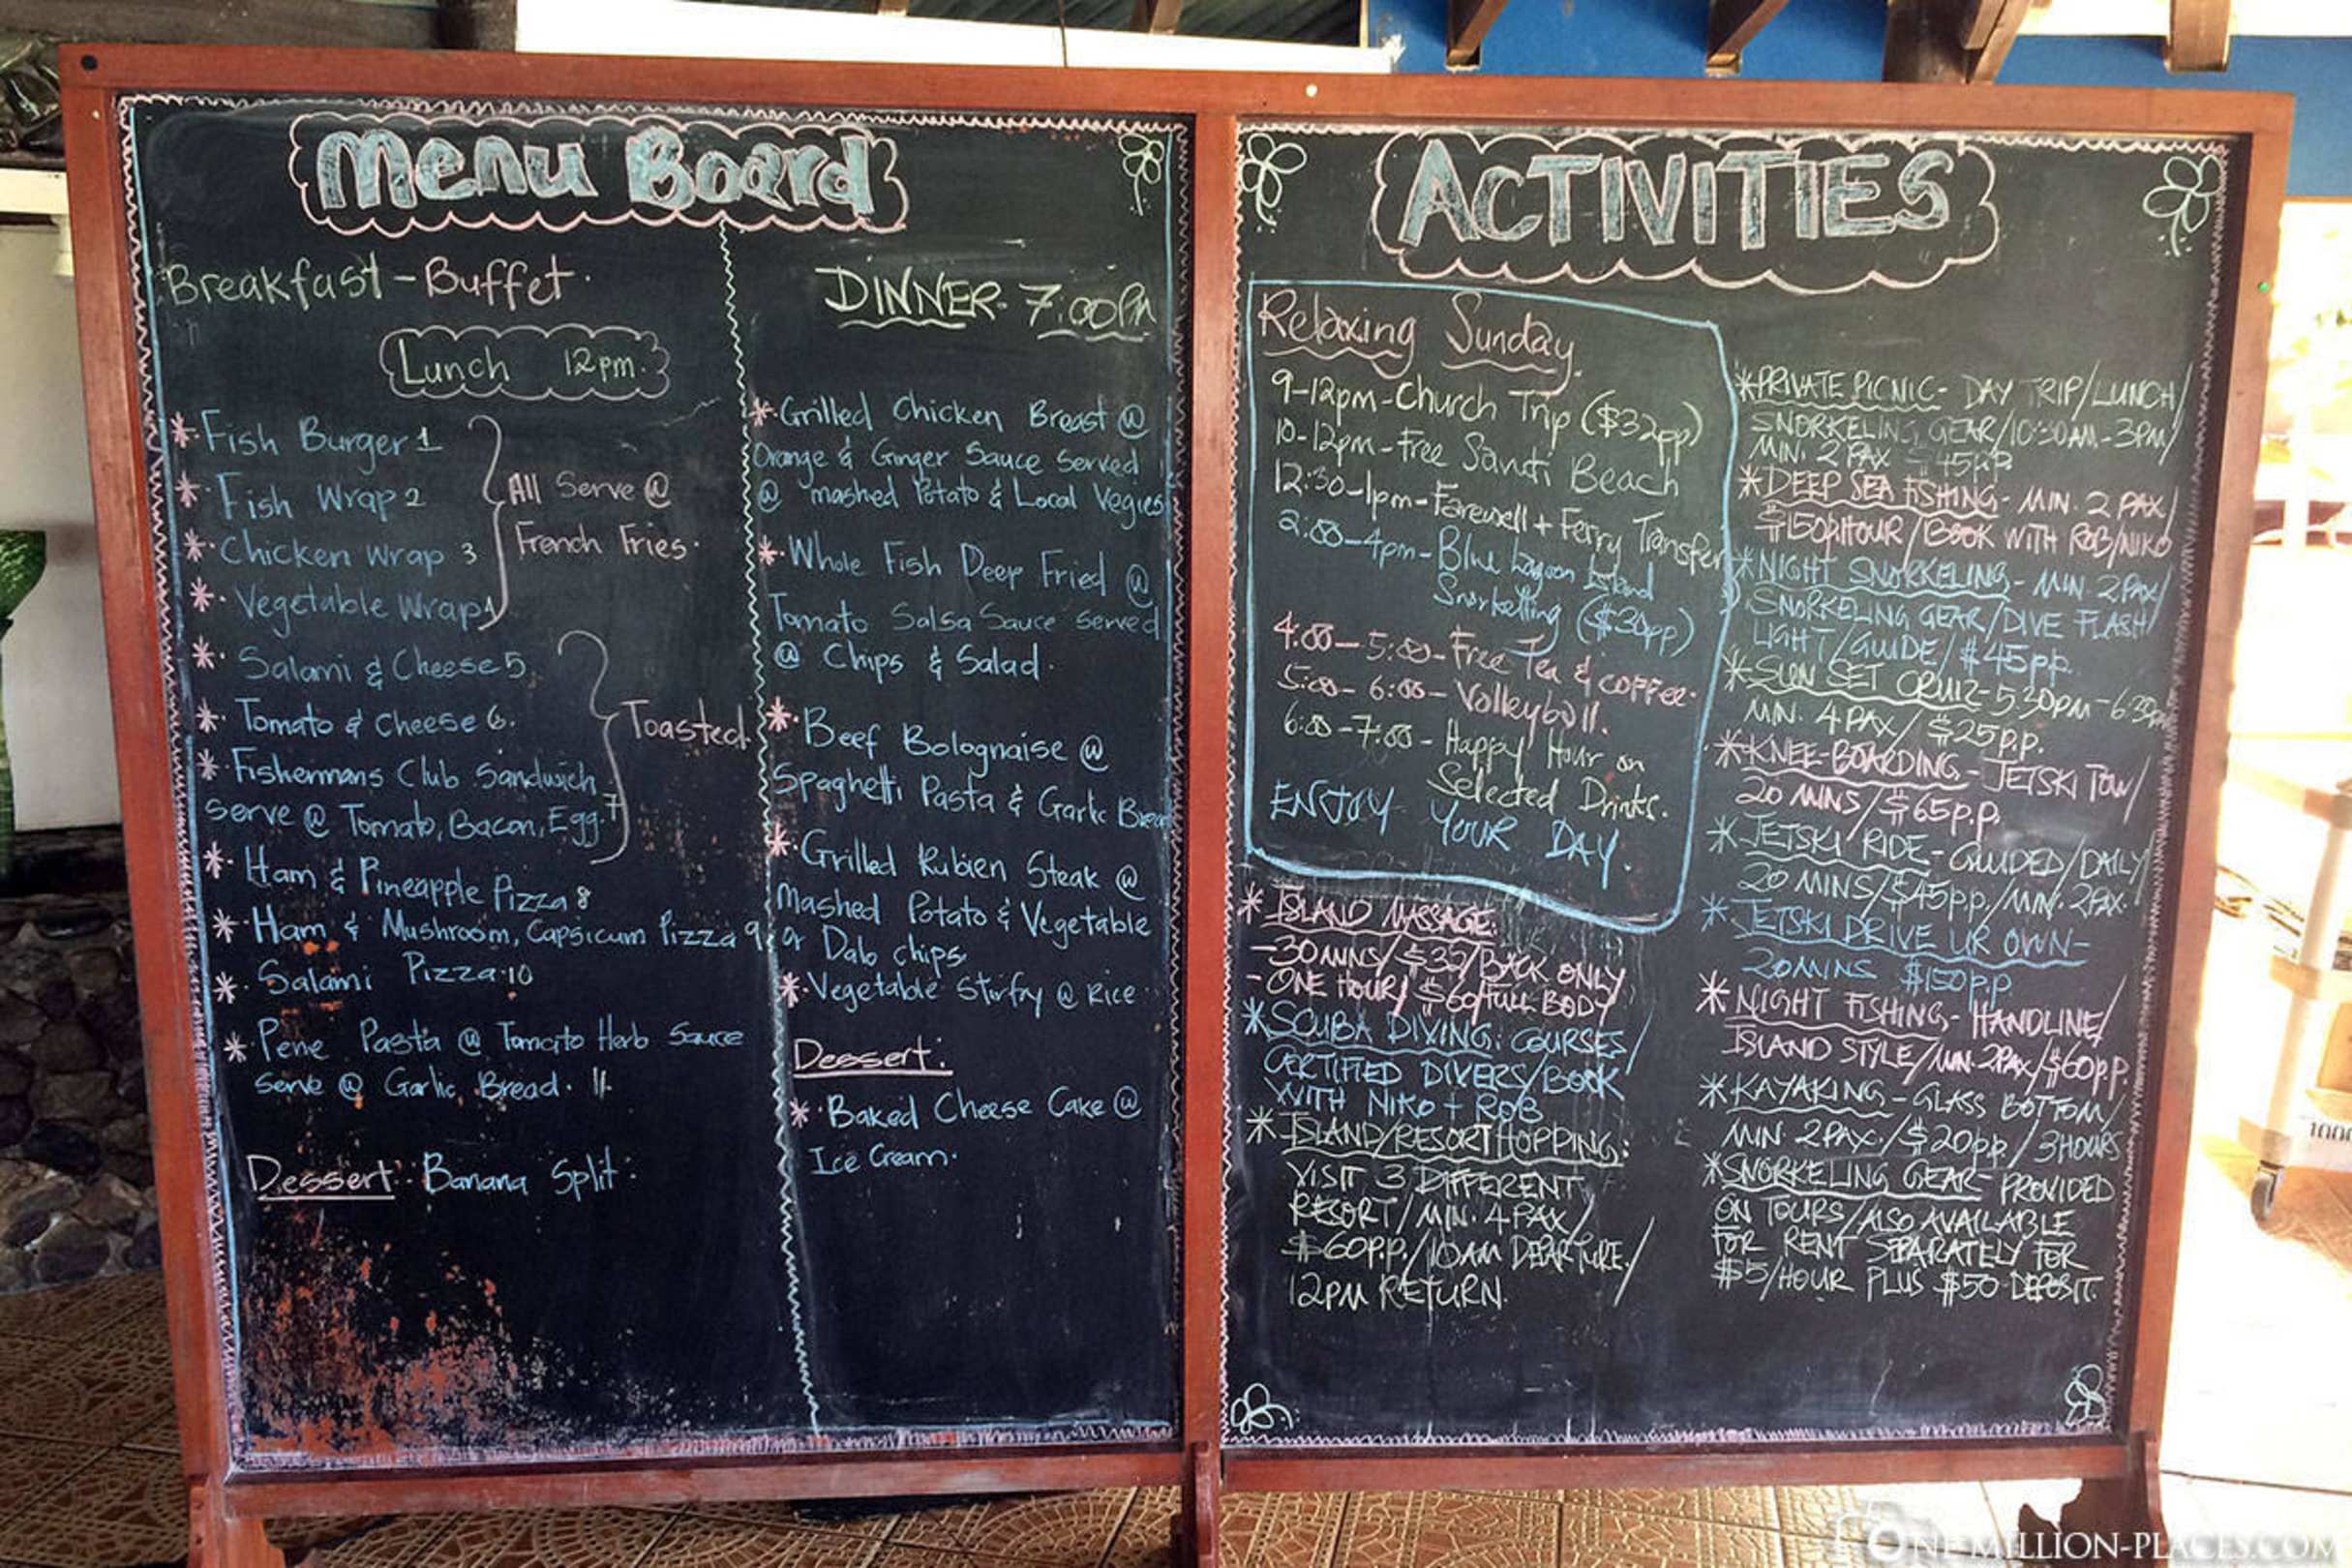 Menu Board
Breakfast - Buffet.
Lunch 12pm.
* Fish Burger 1
* Fish Wrap 2
* Chicken Wrap 3
* Vegetable Wrap 4
All Serve @
French Fries.
* Salami & Cheese 5
* Tomato & Cheese 6.
* Fishermans Club Sandwich
serve @ Tomato, Bacon, Egg. 7
Toasted
* Ham & Pineapple Pizza 8
* Ham & Mushroom, Capsicum Pizza 9
* Salami Pizza 10
* Pene Pasta @ Tomato Herb Sauce
serve @ Garlic Bread. 11
Dessert: Banana Split.
DINNER - 7:00Pm
* Grilled Chicken Breast @
Orange & Ginger Sauce Served
@ mashed Potato & Local Vegies
* Whole Fish Deep Fried @
Tomato Salsa Sauce served
@ Chips & Salad.
* Beef Bolognaise @
Spaghetti Pasta & Garlic Bread
* Grilled Rubien Steak @
Mashed Potato & Vegetable
or Dalo chips
* Vegetable Stirfry @ Rice
Dessert:
* Baked Cheese Cake @
Ice Cream.
ACTIVITIES
Relaxing Sunday.
9-12pm - Church Trip ($32pp)
10-12pm - Free Sandi Beach
12:30-1pm - Farewell + Ferry Transfer
2:00-4pm - Blue Lagoon Island
Snorkelling ($30pp)
4:00 - 5:00 - Free Tea & coffee.
5:00 - 6:00 - Volleyball.
6:00 - 7:00 - Happy Hour on
Selected Drinks.
ENJOY YOUR DAY.
* ISLAND MASSAGE:
- 30 MINS/ $32/BACK ONLY
- ONE HOUR/ $60/FULL BODY
* SCUBA DIVING: COURSES/
CERTIFIED DIVERS/BOOK
WITH NIKO + ROB
* ISLAND/RESORT HOPPING:
VISIT 3 DIFFERENT
RESORT/MIN. 4 PAX/
$60P.P./10AM DEPARTURE/
12PM RETURN.
* PRIVATE PICNIC - DAY TRIP/LUNCH/
SNORKELING GEAR/10:30AM - 3PM/
MIN. 2 PAX $45P.P.
* DEEP SEA FISHING - MIN. 2 PAX/
$150/HOUR/BOOK WITH ROB/NIKO
* NIGHT SNORKELING - MIN. 2PAX/
SNORKELING GEAR/DIVE FLASH/
LIGHT/GUIDE/ $45p.p.
* SUN SET CRUIZ - 5:30PM - 6:30PM
MIN. 4 PAX / $25P.P.
* KNEE-BOARDING - JETSKI TOW/
20 MINS/$65P.P.
* JETSKI RIDE - GUIDED/DAILY
20 MINS/$45p.p./MIN. 2PAX.
* JETSKI DRIVE UR OWN -
20MINS $150p.p.
* NIGHT FISHING - HANDLINE/
ISLAND STYLE/MIN. 2PAX/$60p.p.
* KAYAKING - GLASS BOTTOM/
MIN 2PAX/$20p.p/3HOURS
* SNORKELING GEAR - PROVIDED
ON TOURS/ALSO AVAILABLE
FOR RENT SEPARATELY FOR
$5/HOUR PLUS $50 DEPOSIT.
ONE-MILLION-PLACES.COM